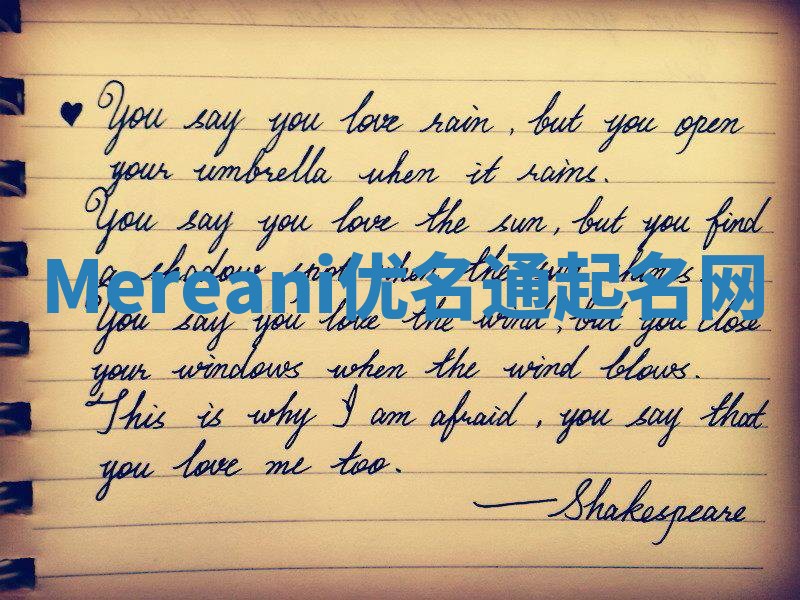 ♥ You say you love rain, but you open
your umbrella when it rains.
You say you love the sun, but you find
a shadow spot when the sun shines.
Mereani优名通起名网
You say you love the wind, but you close
your windows when the wind blows.
This is why I am afraid, you say that
you love me too.
—Shakespeare